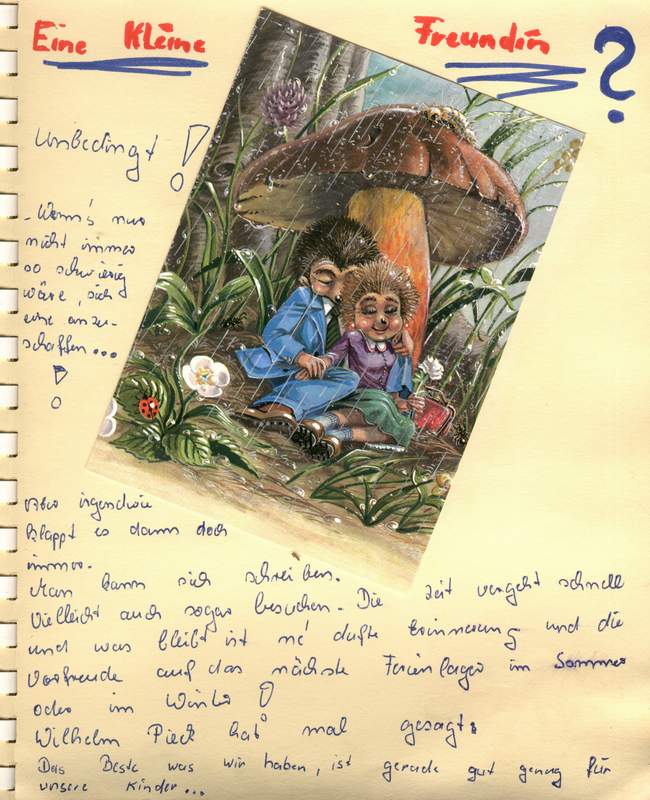 Eine Kleine Freundin ?
Unbedingt !
- Wenn's nur
nicht immer
so schwierig
wäre, sich
eine anzu-
schaffen...
!
Aber irgendwie
klappt es dann doch
immer.
Man kann sich schreiben.
Vielleicht auch sogar besuchen - Die Zeit vergeht schnell
und was bleibt ist ne' dufte Erinnerung und die
Vorfreude auf das nächste Ferienlager im Sommer
oder im Winter !
Wilhelm Pieck hat mal gesagt:
Das Beste was wir haben, ist gerade gut genug für
unsere Kinder...